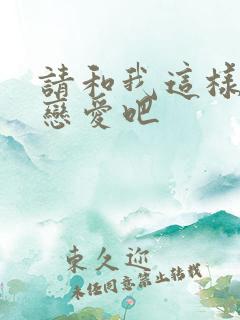 請和我這樣
戀愛吧
東久迎
未经同意禁止转载